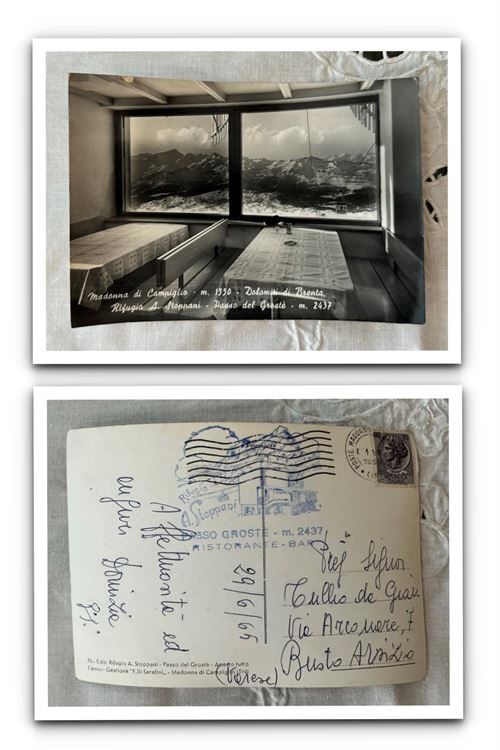 Madonna di Campiglio - m. 1550 - Dolomiti di Brenta
Rifugio A. Stoppani - Passo del Grostè - m. 2437
POSTE MADONNA
Rifugio
A. Stoppani
PASSO GROSTÈ - m. 2437
RISTORANTE - BAR
Affettuosità ed
auguri
29/6/65
Preg Signor
Tullio da Gian
Via Arconare, 7
Busto Arsizio
(Varese)
76 - Ediz. Rifugio A. Stoppani - Passo del Grostè - Aperto tutto
l'anno - Gestione "F.lli Serafini" - Madonna di Campiglio (TN)